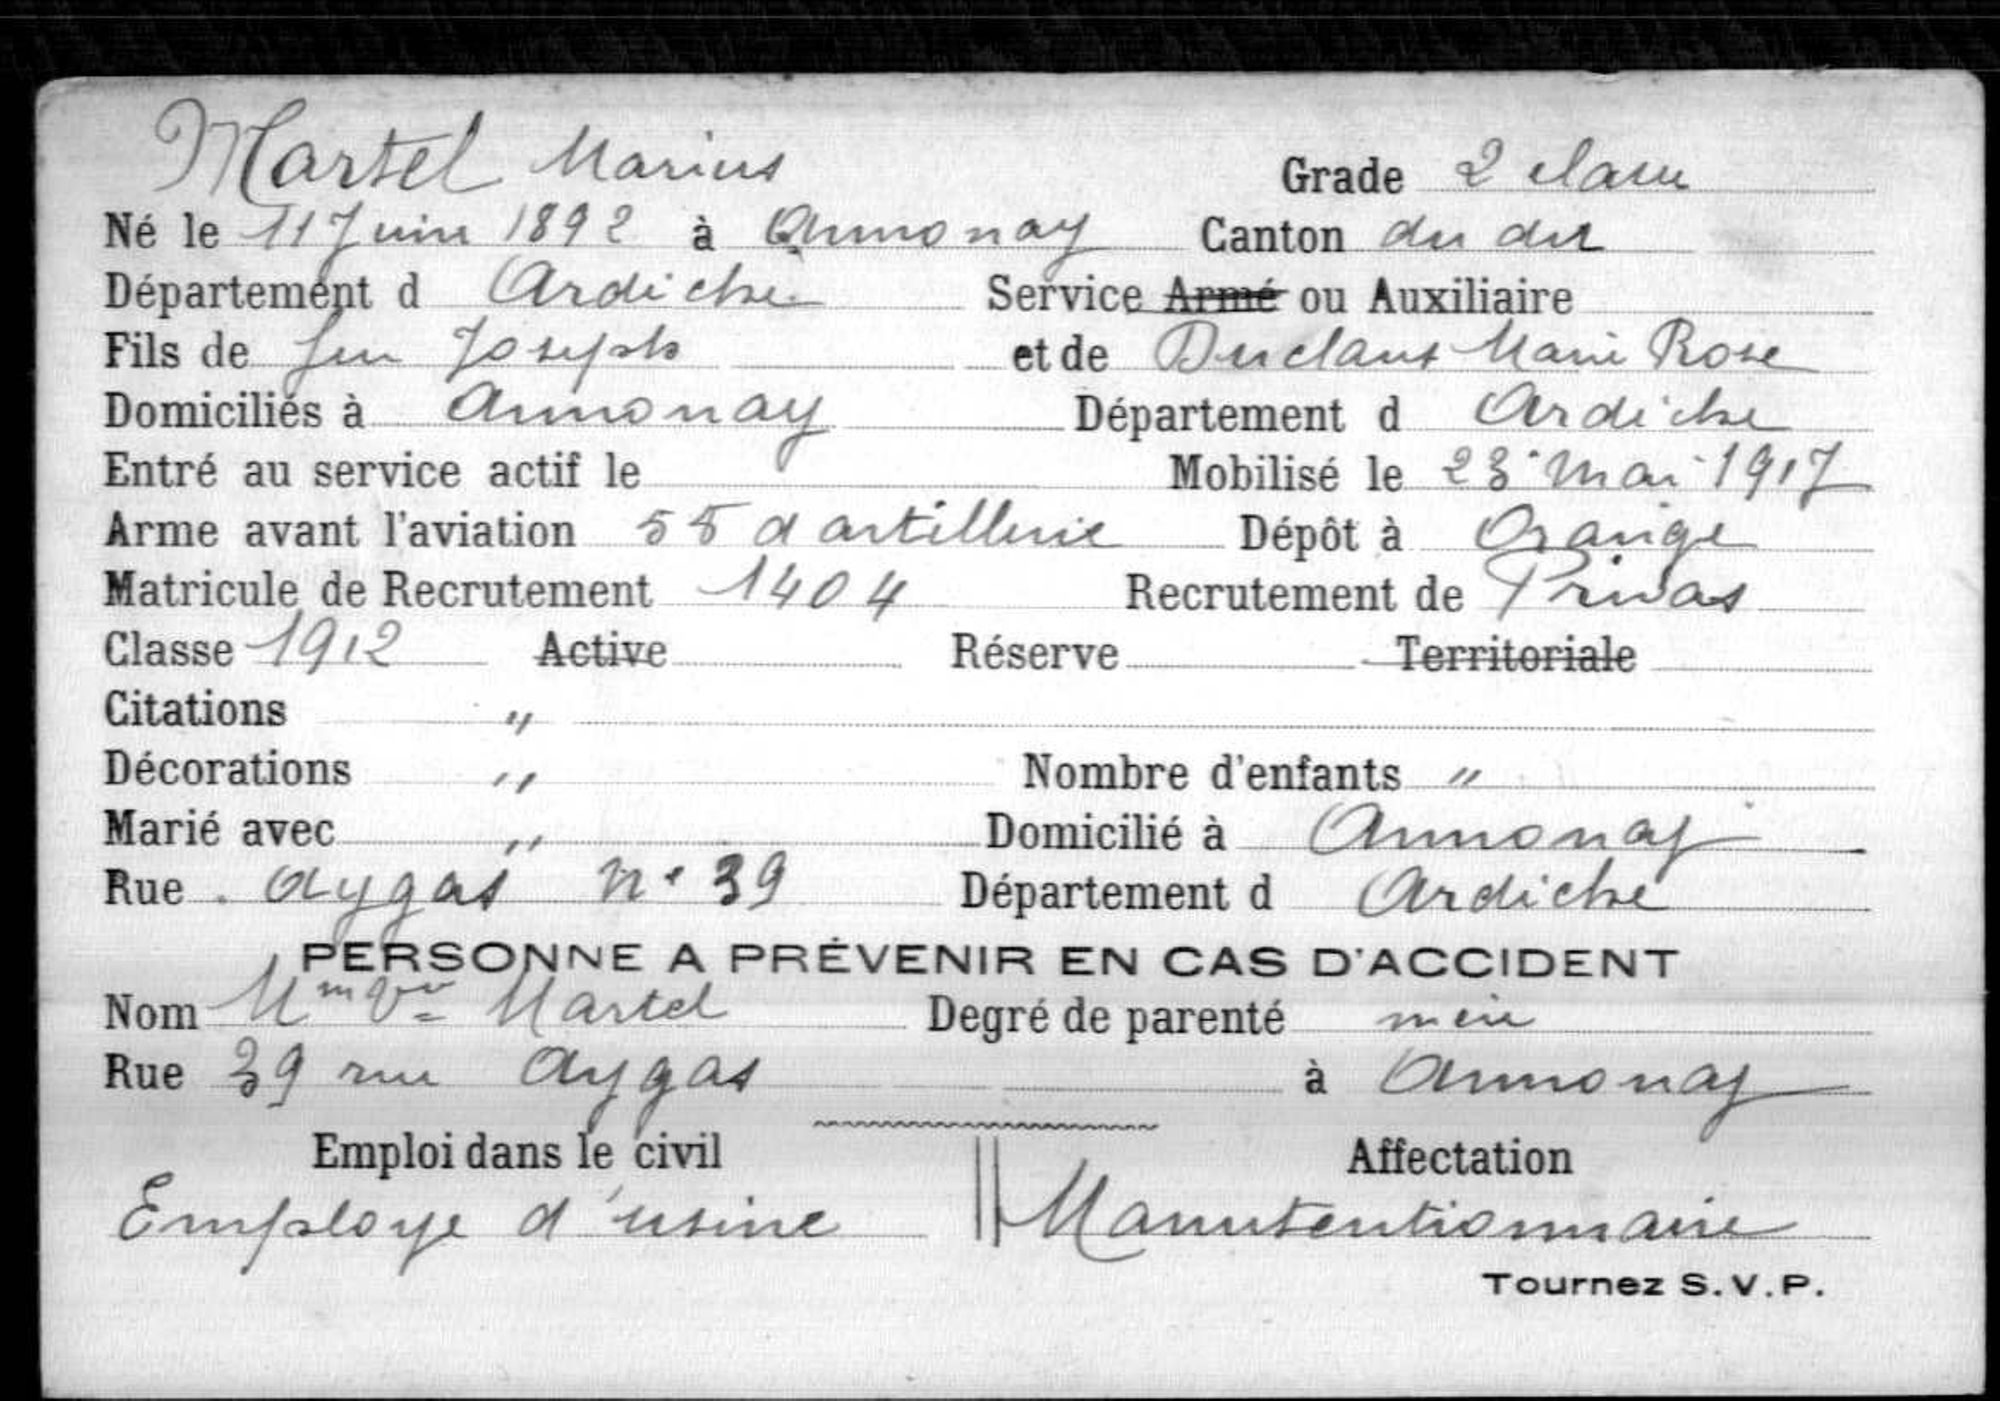 Martel Marius Grade 2 classe
Né le 11 Juin 1892 à Annonay Canton du dit
Département d Ardèche Service Armé ou Auxiliaire
Fils de feu Joseph et de Duclaux Marie Rose
Domiciliés à Annonay Département d Ardèche
Entré au service actif le Mobilisé le 23 Mai 1917
Arme avant l'aviation 55 d artillerie Dépôt à Orange
Matricule de Recrutement 1404 Recrutement de Privas
Classe 1912 Active Réserve Territoriale
Citations "
Décorations " Nombre d'enfants "
Marié avec " Domicilié à Annonay
Rue Aygas N° 39 Département d Ardèche
PERSONNE A PRÉVENIR EN CAS D'ACCIDENT
Nom Mme Vve Martel Degré de parenté mère
Rue 39 rue Aygas à Annonay
Emploi dans le civil Affectation
Employe d'usine Manutentionnaire
Tournez S.V.P.